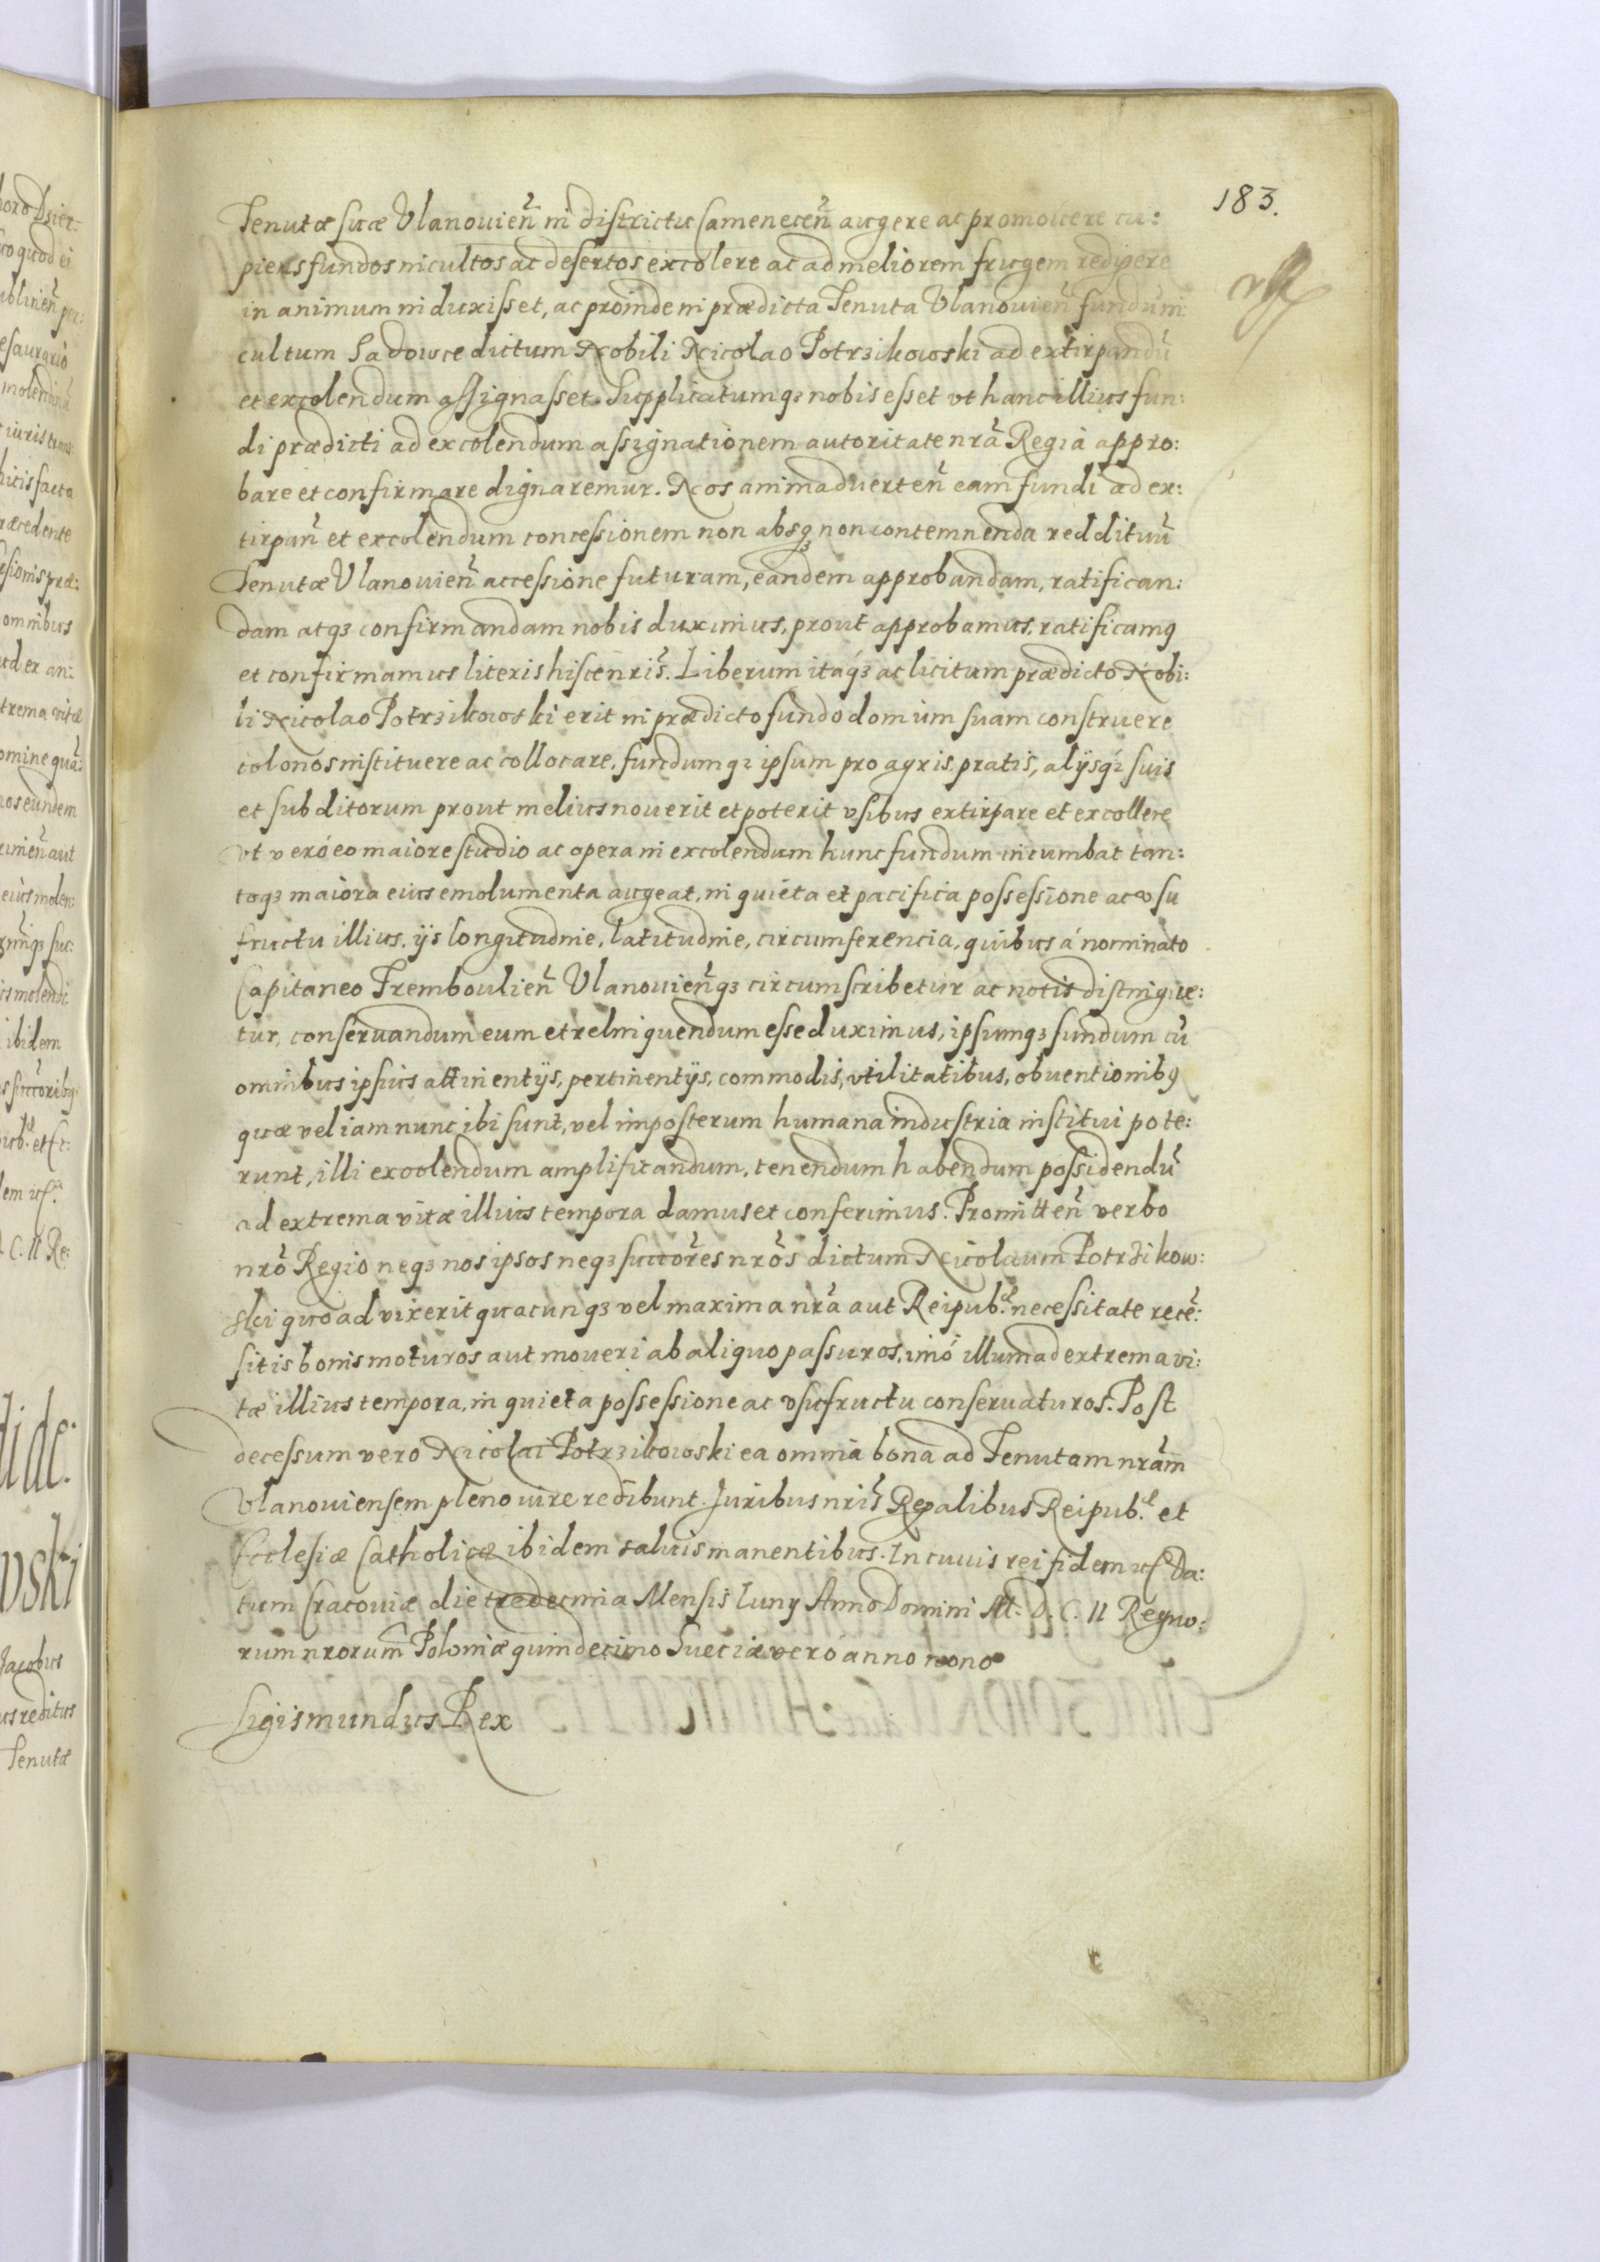 183.
Tenutæ suæ Vlanouieñ in districtu Camenecen̄ augere ac promouere cu:
piens fundos incultos ac desertos excolere ac ad meliorem frugem redigere
in animum induxisset, ac proinde in prædicta Tenuta Vlanouien̄ fundum in
cultum Sadowce dictum Nobili Nicolao Potrzikowski ad extirpandū
et excolendum assignasset. Supplicatumqꝫ nobis esset vt hanc illius fun:
di prædicti ad excolendum assignationem autoritate nrā Regia appro:
bare et confirmare dignaremur. Nos animaduerten̄ eam fundi ad ex:
tirpan̄ et excolendum concessionem non absqꝫ non contemnenda reddituū
Tenutæ Vlanouien̄ accessione futuram, eandem approbandam, ratifican:
dam atqꝫ confirmandam nobis duximus, prout approbamus, ratificamꝯ
et confirmamus literis hisce nrīs. Liberum itaqꝫ ac licitum prædicto Nobi:
li Nicolao Potrzikowski erit in prædicto fundo domum suam construere
colonos instituere ac collocare, fundumqꝫ ipsum pro agris, pratis, alÿsqꝫ suis
et subditorum prout melius nouerit et poterit vsibus extirpare et excollere
vt veró eo maiore studio ac opera in excolendum hunc fundum incumbat tan:
toqꝫ maiora eius emolumenta augeat, in quieta et pacifica possessione ac vsu
fructu illius, ijs longitudine, latitudine, circumferencia, quibus á nominato
Capitaneo Tremboulien̄ Vlanouien̄qꝫ circumscribetur ac notis distingue:
tur, conseruandum eum et relinquendum esse duximus, ipsumqꝫ fundum cū
omnibus ipsius attinentÿs, pertinentÿs, commodis, vtilitatibus, obuentionibꝯ
quæ vel iam nunc ibi sunt, vel imposterum humana industria institui pote:
runt, illi excolendum amplificandum, tenendum habendum possidendū
ad extrema vitæ illius tempora damus et conferimus. Promitten̄ verbo
nrō Regio neqꝫ nos ipsos neqꝫ succōres nrōs dictum Nicolaum Potrzikow:
ski quoad vixerit quacunqꝫ vel maxima nrā aut Reipub.ᶜᵉ necessitate recē:
sitis bonis moturos aut moueri ab aliquo passuros, imó illum ad extrema vi:
tæ illius tempora, in quieta possessione ac vsufructu conseruaturos. Post
decessum vero Nicolai Potrzikowski ea omnia bona ad Tenutam nrām
Vlanouiensem pleno iure redibunt. Juribus nrīs Regalibus Reipub.ᶜᵉ et
Ecclesiæ Catholicæ ibidem saluis manentibus. In cuius rei fidem etc̄. Da:
tum Cracouiæ die tredecima Mensis Iunÿ Anno Domini M. D. C. II Regno:
rum nrorum̄ Poloniæ quindecimo Sueciæ veró anno nono
Sigismundus Rex